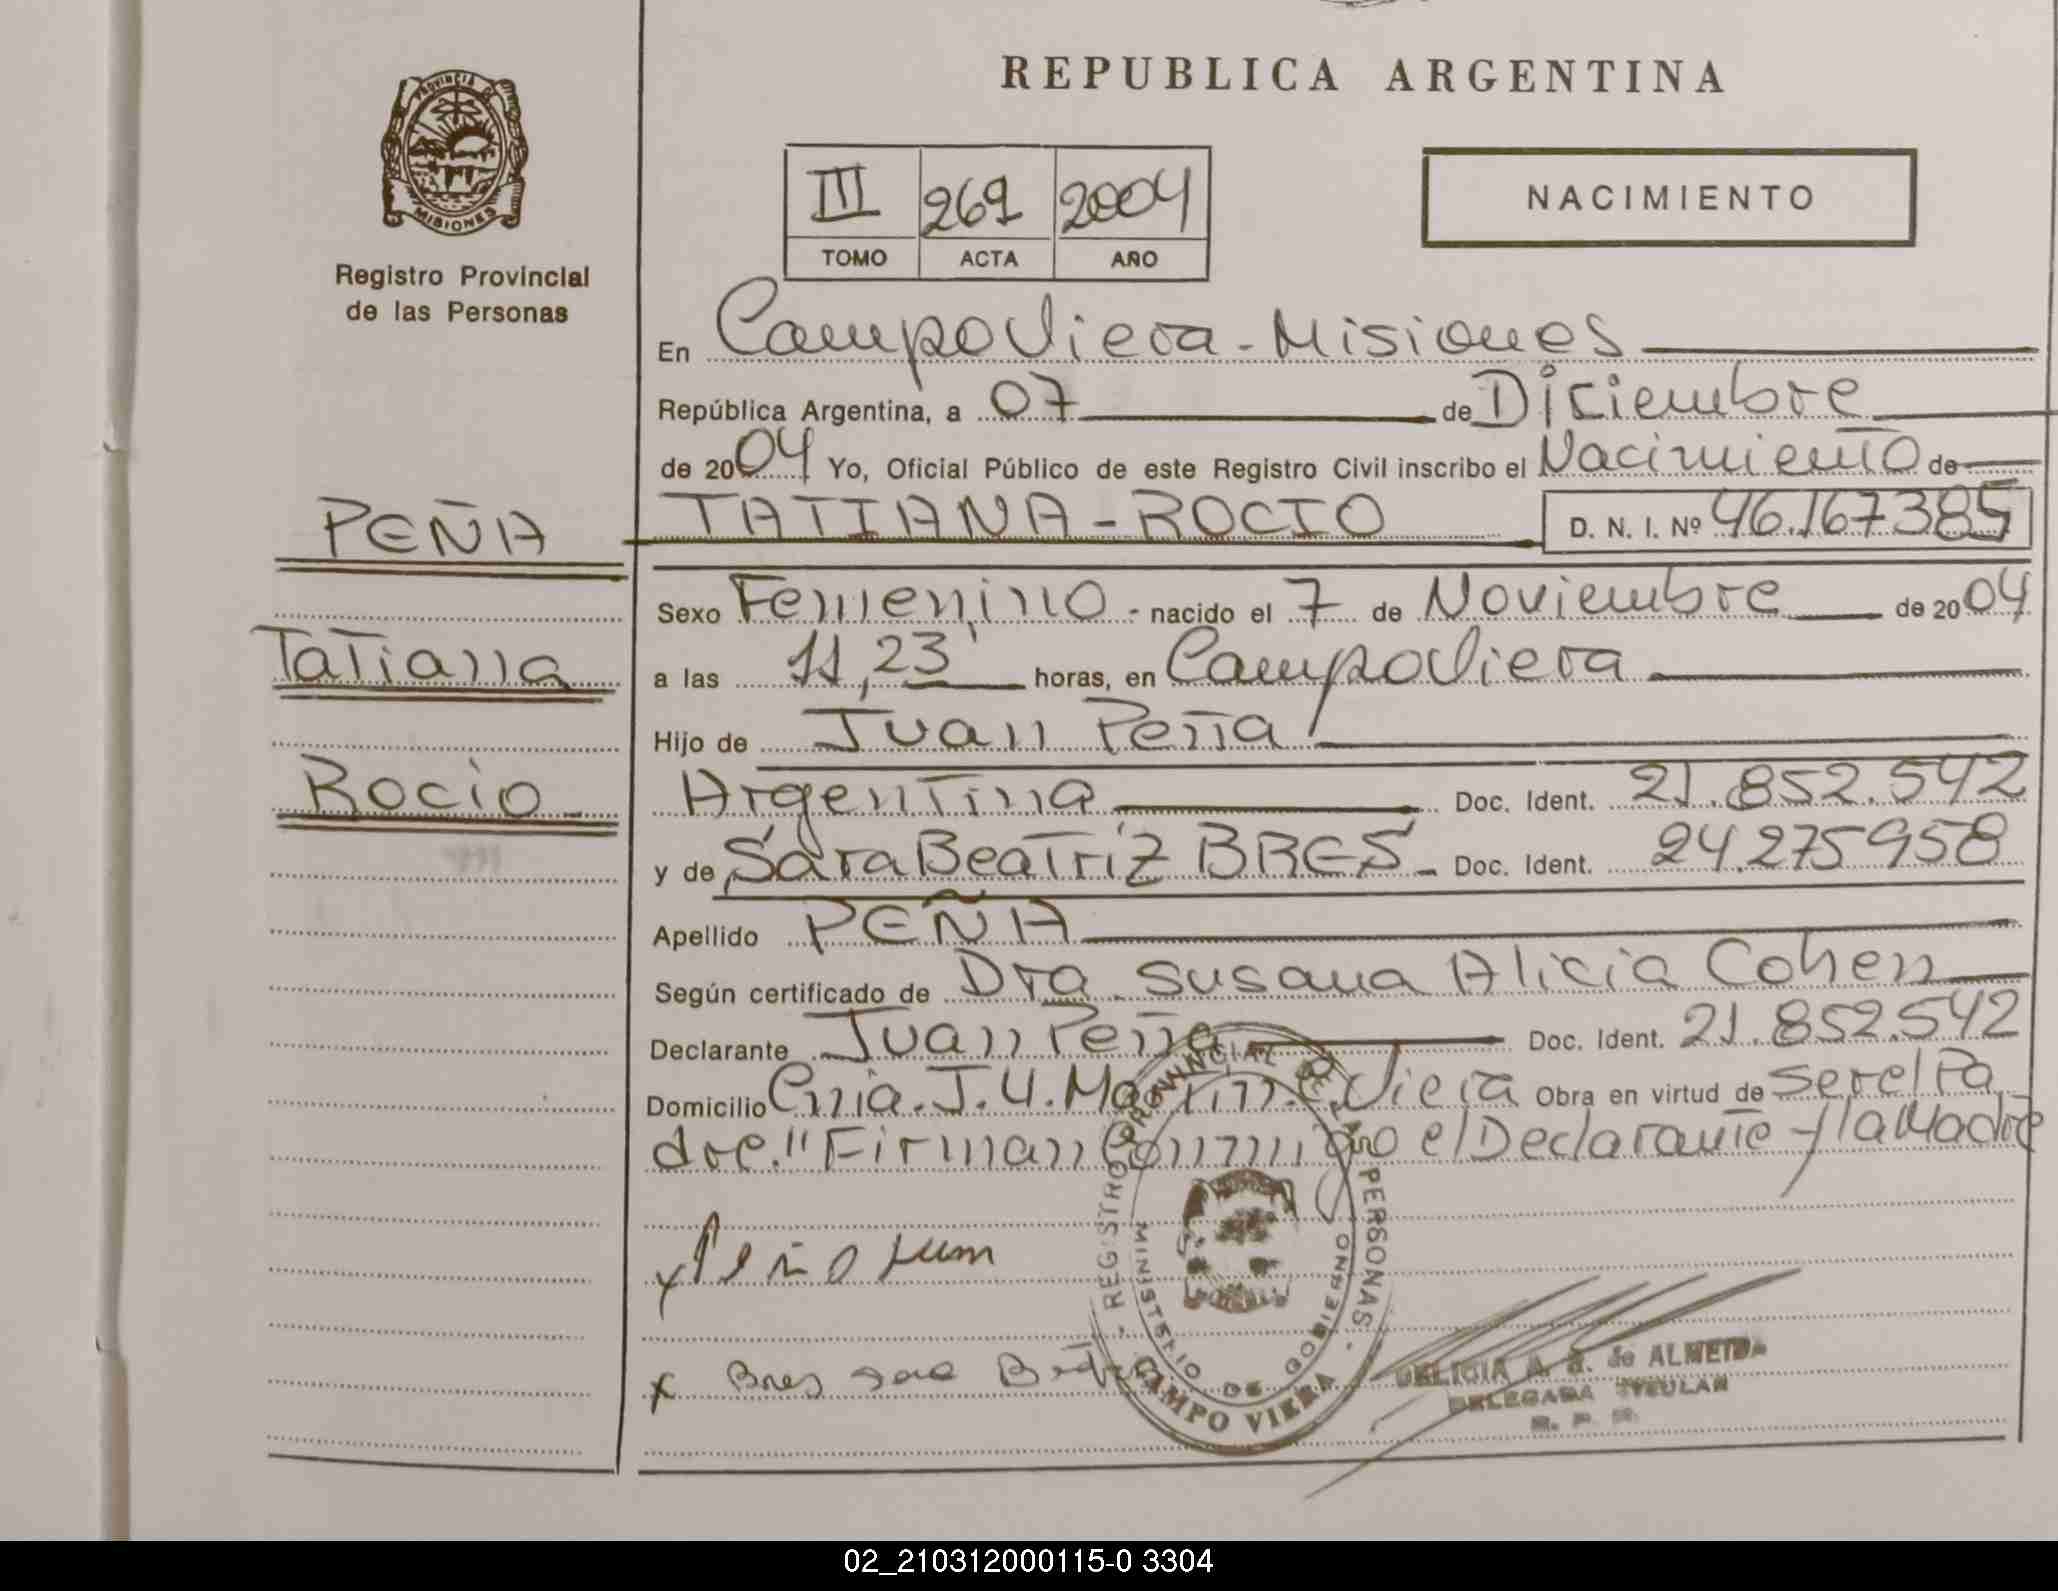 REPUBLICA ARGENTINA
PROVINCIA DE MISIONES
Registro Provincial
de las Personas
III 269 2004
TOMO ACTA AÑO
NACIMIENTO
En Campo Viera - Misiones
República Argentina, a 07 de Diciembre
de 2004 Yo, Oficial Público de este Registro Civil inscribo el Nacimiento de
PEÑA
TATIANA - ROCIO D. N. I. Nº 46.167385
Sexo Femenino - nacido el 7 de Noviembre de 2004
Tatiana
a las 11,23' horas, en Campo Viera
Hijo de Juan Peña
Rocio
Argentina Doc. Ident. 21.852.542
y de Sara Beatriz BRES - Doc. Ident. 24.275958
Apellido PEÑA
Según certificado de Dra. Susana Alicia Cohen
Declarante Juan Peña Doc. Ident. 21.852.542
Domicilio J.U. C. Viera Obra en virtud de ser el Pa
dre." Firman Conmigo el Declarante y la Madre
x Peña Juan
x Bres Sara
REGISTRO PROVINCIAL DE LAS PERSONAS
MINISTERIO DE GOBIERNO
CAMPO VIERA
DELICIA A. B. de ALMEIDA
DELEGADA TITULAR
R. P. P.
02_210312000115-0 3304